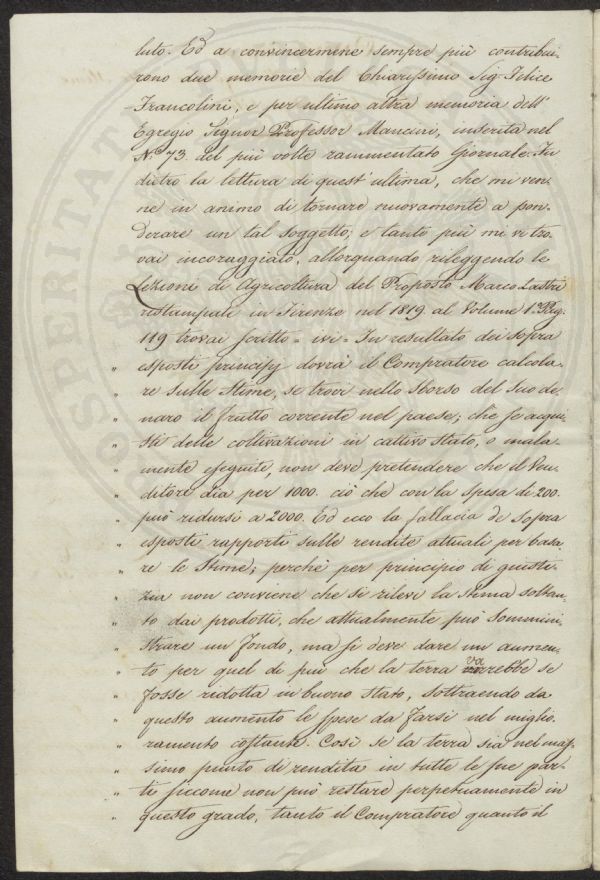 luto. Ed a convincermene sempre più contribui-
rono due memorie del Chiarissimo Sig. Felice
Francolini, e per ultimo altra memoria dell'
Egregio Signor Professor Mancini, inserita nel
N.° 73. del più volte rammentato Giornale. In
dietro la lettura di quest'ultima, che mi ven-
ne in animo di tornare nuovamente a pon-
derare un tal soggetto; e tanto più mi ritro-
vai incoraggiato, allorquando rileggendo le
Lezioni di Agricoltura del Proposto Marco Lastri
ristampati in Firenze nel 1819. al Volume 1.° Pag.
119 trovai scritto = ivi = In resultato dei sopra
" esposti principj dovrà il Compratore calcola-
" re sulle Stime, se trovi nello Sborso del suo de-
" naro il frutto corrente nel paese; che se acqui-
" sti delle coltivazioni in cattivo stato, o mala-
" mente eseguite, non deve pretendere che il Ven-
" ditore dia per 1000. ciò che con la spesa di 200.
" può ridursi a 2000. Ed ecco la fallacia de sopra
" esposti rapporti sulle rendite attuali per basa-
" re le Stime; perchè per principio di giusti-
" zia non conviene che si rilevi la stima soltan-
" to dai prodotti, che attualmente può sommini-
" strare un fondo, ma si deve dare un aumen-
" to per quel di più che la terra varrebbe se
" fosse ridotta in buono stato, sottraendo da
" questo aumento le spese da farsi nel miglio-
" ramento costante. Così se la terra sia nel mas-
" simo punto di rendita in tutte le sue par-
" ti siccome non può restare perpetuamente in
" questo grado, tanto il Compratore quanto il
PROSPERITATI PVBLICAE